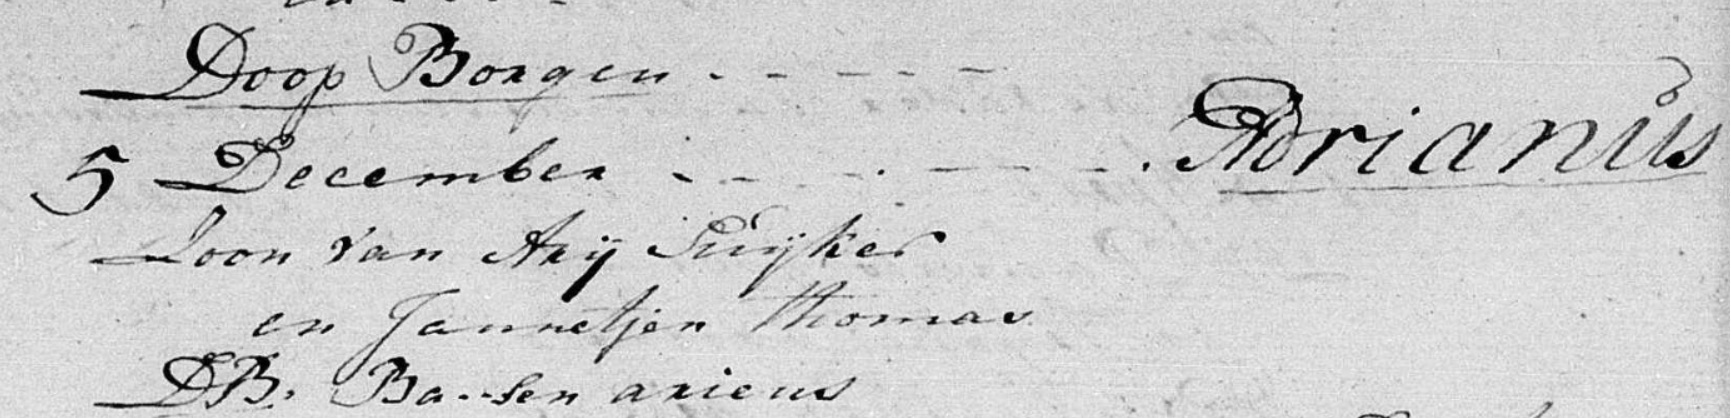 Doop Borgen - - - - -
5 December - - - - - - Adrianus
Soon van Arij Suijker
en Jannetjen Thomas
DB. Ba..sen ariens